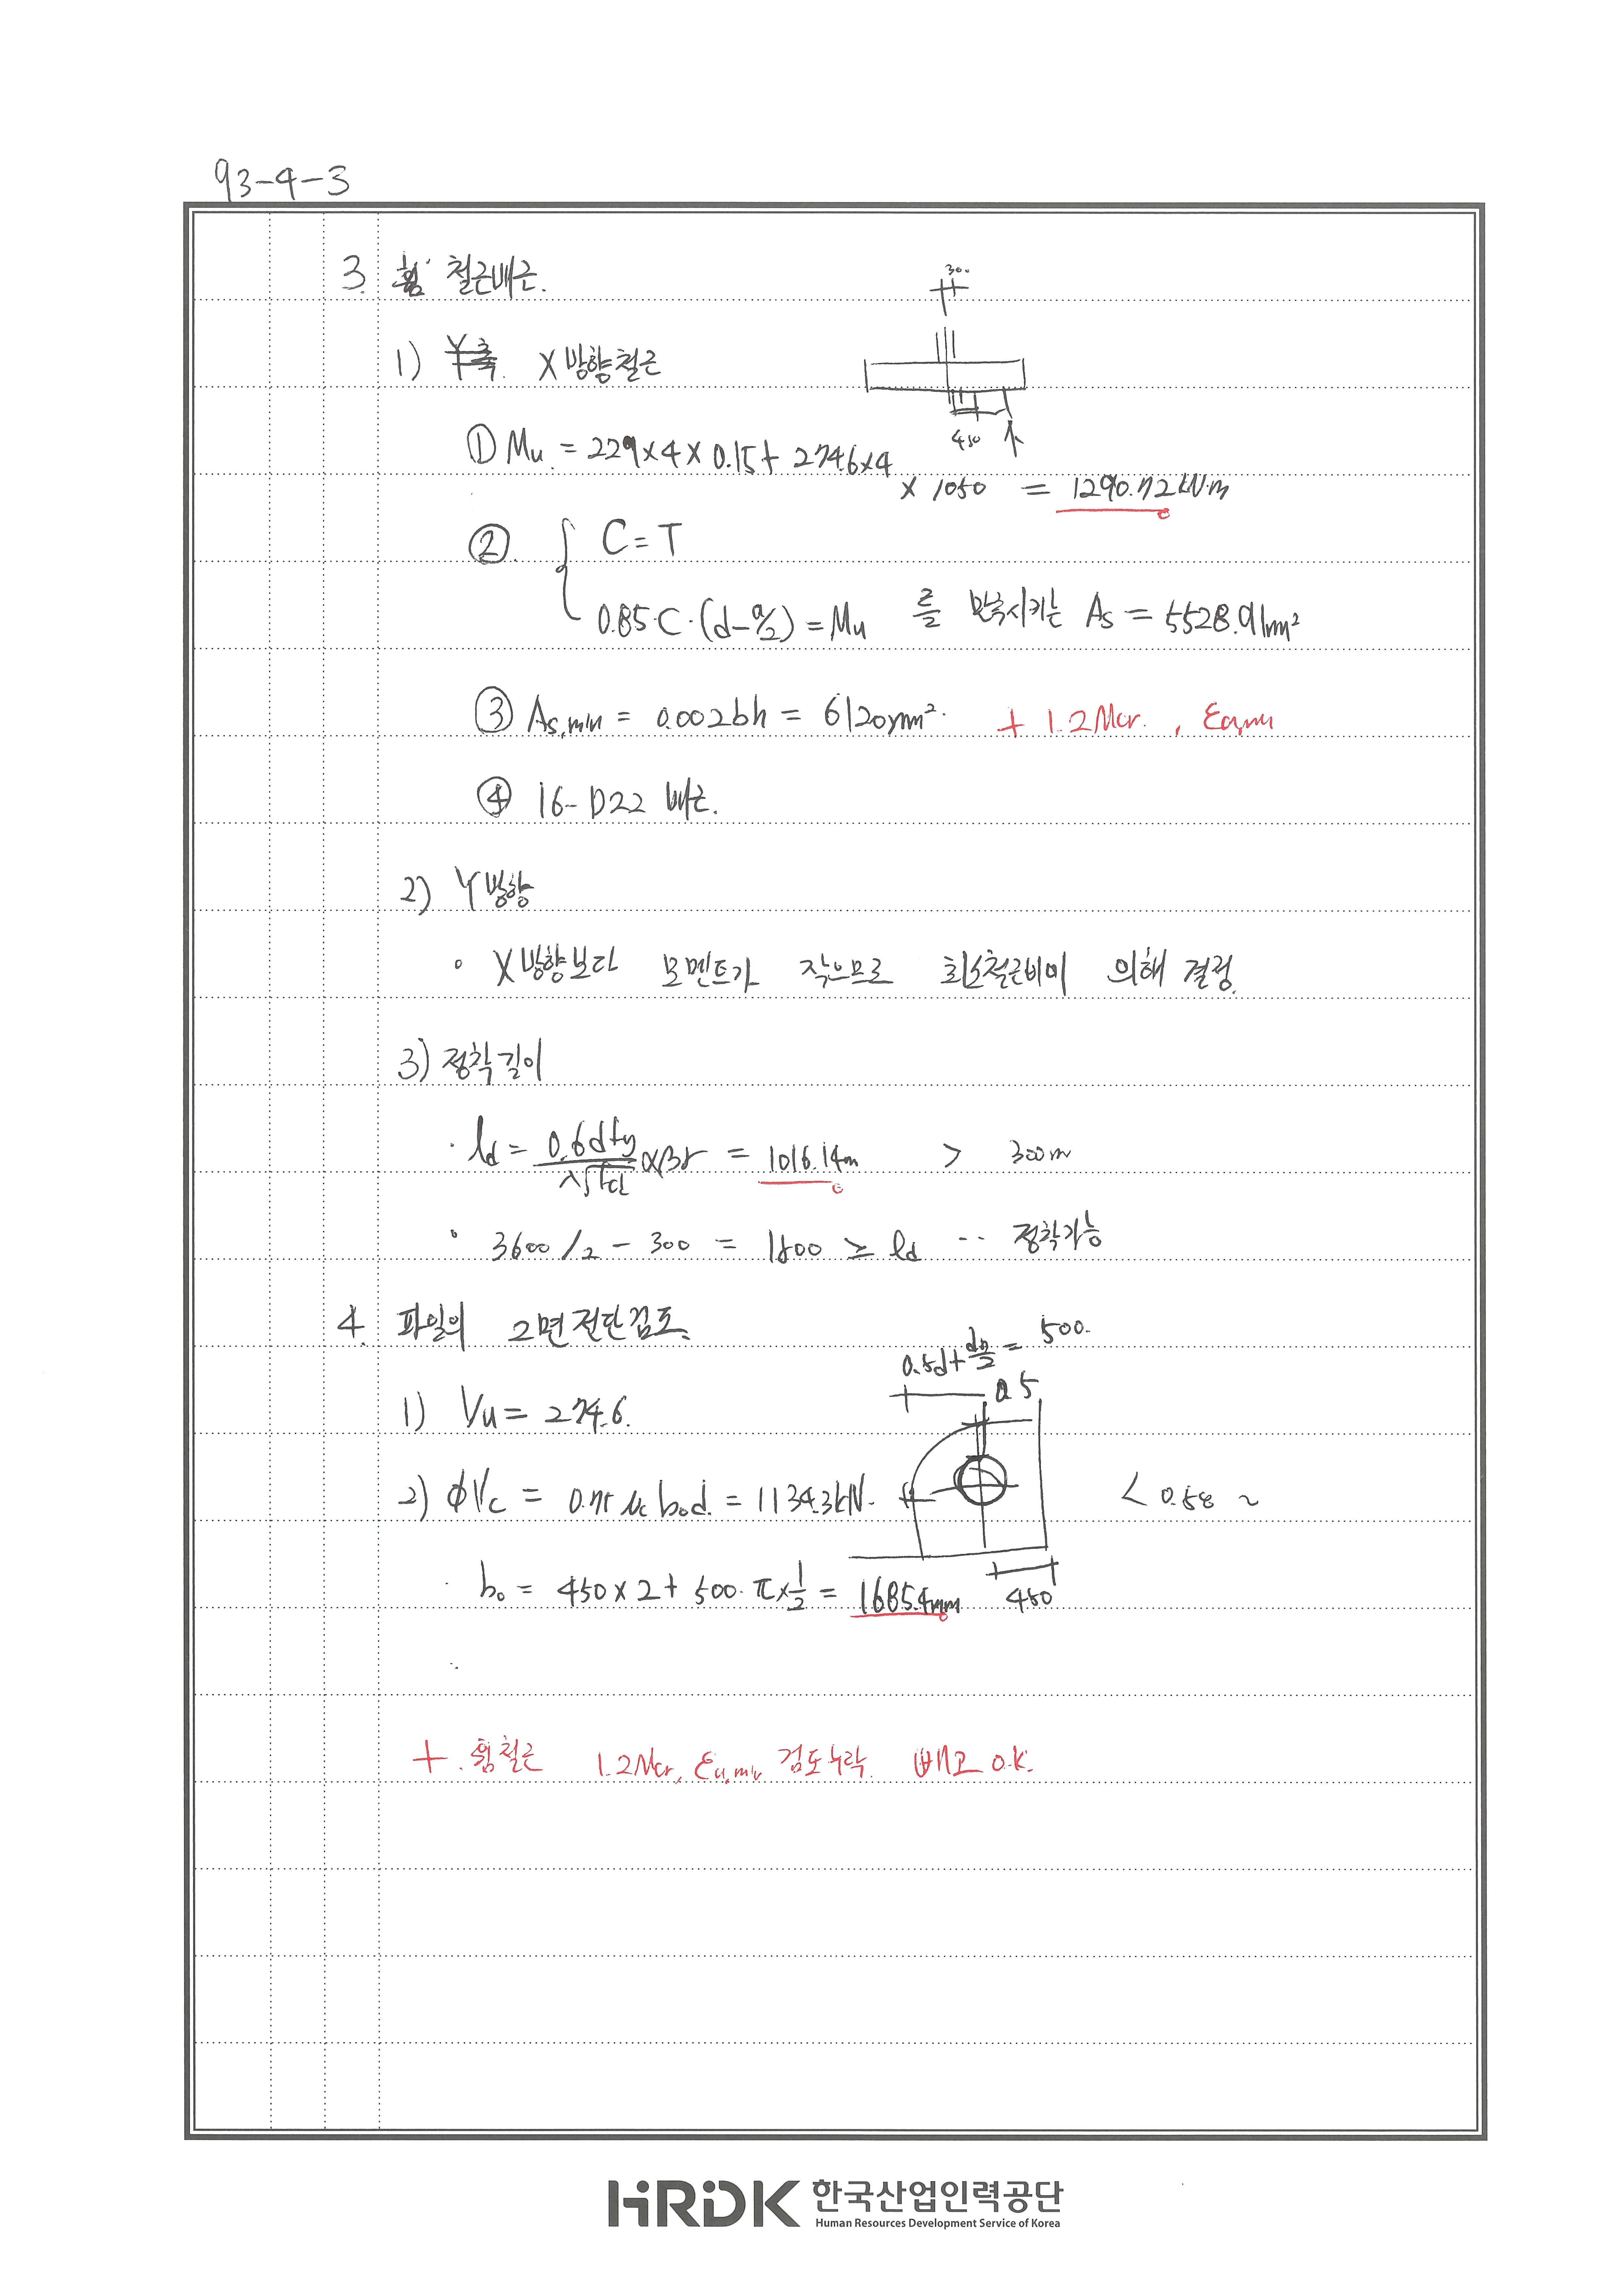 93-4-3
3. 휨 철근배근.
300
1) Y축 X방향철근
① Mu = 229×4×0.15+ 274.6×4
450
× 1050 = 1290.72kN·m
② { C=T
0.85·C·(d-a/2) = Mu 를 만족시키는 As = 5528.91mm²
③ As,min = 0.002bh = 6120mm². + 1.2Mcr. ,
④ 16-D22 배근.
2) Y방향
• X방향보다 모멘트가 작으므로 최소철근비에 의해 결정.
3) 정착길이
· ld = 0.6dfy/λ√fck αβγ = 1016.14mm > 300m
• 3600/2 - 300 = 1500 ≥ ld ·· 정착가능
4. 파일의 2면전단검토.
0.5d+dp/2 = 500.
0.5
1) Vu = 274.6.
2) ϕVc = 0.75 νc bod. = 1134.3kN. < 0.58 ~
· bo = 450×2+500·π×1/2 = 1685.4mm 450
+ 휨철근 1.2Mcr, 검토누락. 빼고 O.K.
HRDK 한국산업인력공단
Human Resources Development Service of Korea